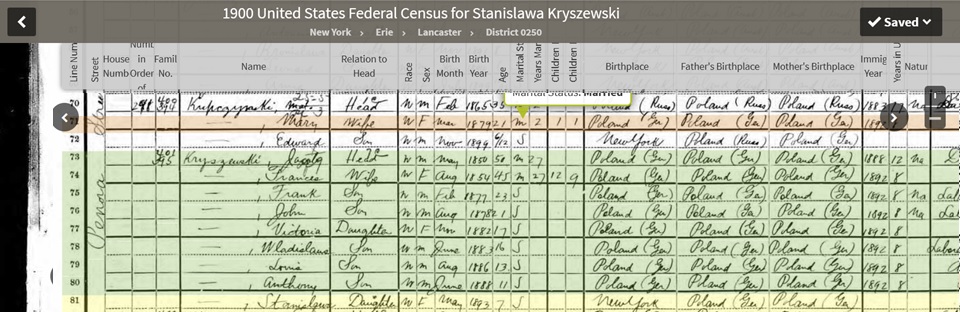 1900 United States Federal Census for Stanislawa Kryszewski
New York > Erie > Lancaster > District 0250
Saved
Line Num Street House Numb Numb in Order of Famil No. Name Relation to Head Race Sex Birth Month Birth Year Age Marital St Years Mar Children Children Birthplace Father's Birthplace Mother's Birthplace Immig Year Years in U Natur
Marital Status: Married
70 Head W m Feb 1865 35 Poland (Russ) Poland (Russ) Poland (Russ)
71 — , Mary Wife W F mar 1879 21 m 2 1 1 Poland (Ger) Poland (Ger) Poland (Ger)
72 — , Edward Son W m Nov 1899 6/12 S New York Poland (Russ) Poland (Ger)
73 Kryszewski, Jacob Head W m may 1850 50 m 27 Poland (Ger) Poland (Ger) Poland (Ger) 1888 12 Na
74 — , Frances Wife W F Aug 1854 45 m 27 12 9 Poland (Ger) Poland (Ger) Poland (Ger) 1892 8
75 — , Frank Son W m Feb 1877 23 S Poland (Ger) Poland (Ger) Poland (Ger) 1892 8 Na
76 — , John Son W m Aug 1878 21 S Poland (Ger) Poland (Ger) Poland (Ger) 1892 8 Na
77 — , Victoria Daughter W F Nov 1882 17 S Poland (Ger) Poland (Ger) Poland (Ger) 1892 8
78 — Wladislaus Son W m June 1883 16 S Poland (Ger) Poland (Ger) Poland (Ger) 1892 8 Labore
79 — , Louis Son W m Aug 1886 13 S Poland (Ger) Poland (Ger) Poland (Ger) 1892 8
80 — , Anthony Son W m June 1888 11 S Poland (Ger) Poland (Ger) Poland (Ger) 1892 8
81 — , Stanislawa Daughter W F May 1893 7 S New York Poland (Ger) Poland (Ger)